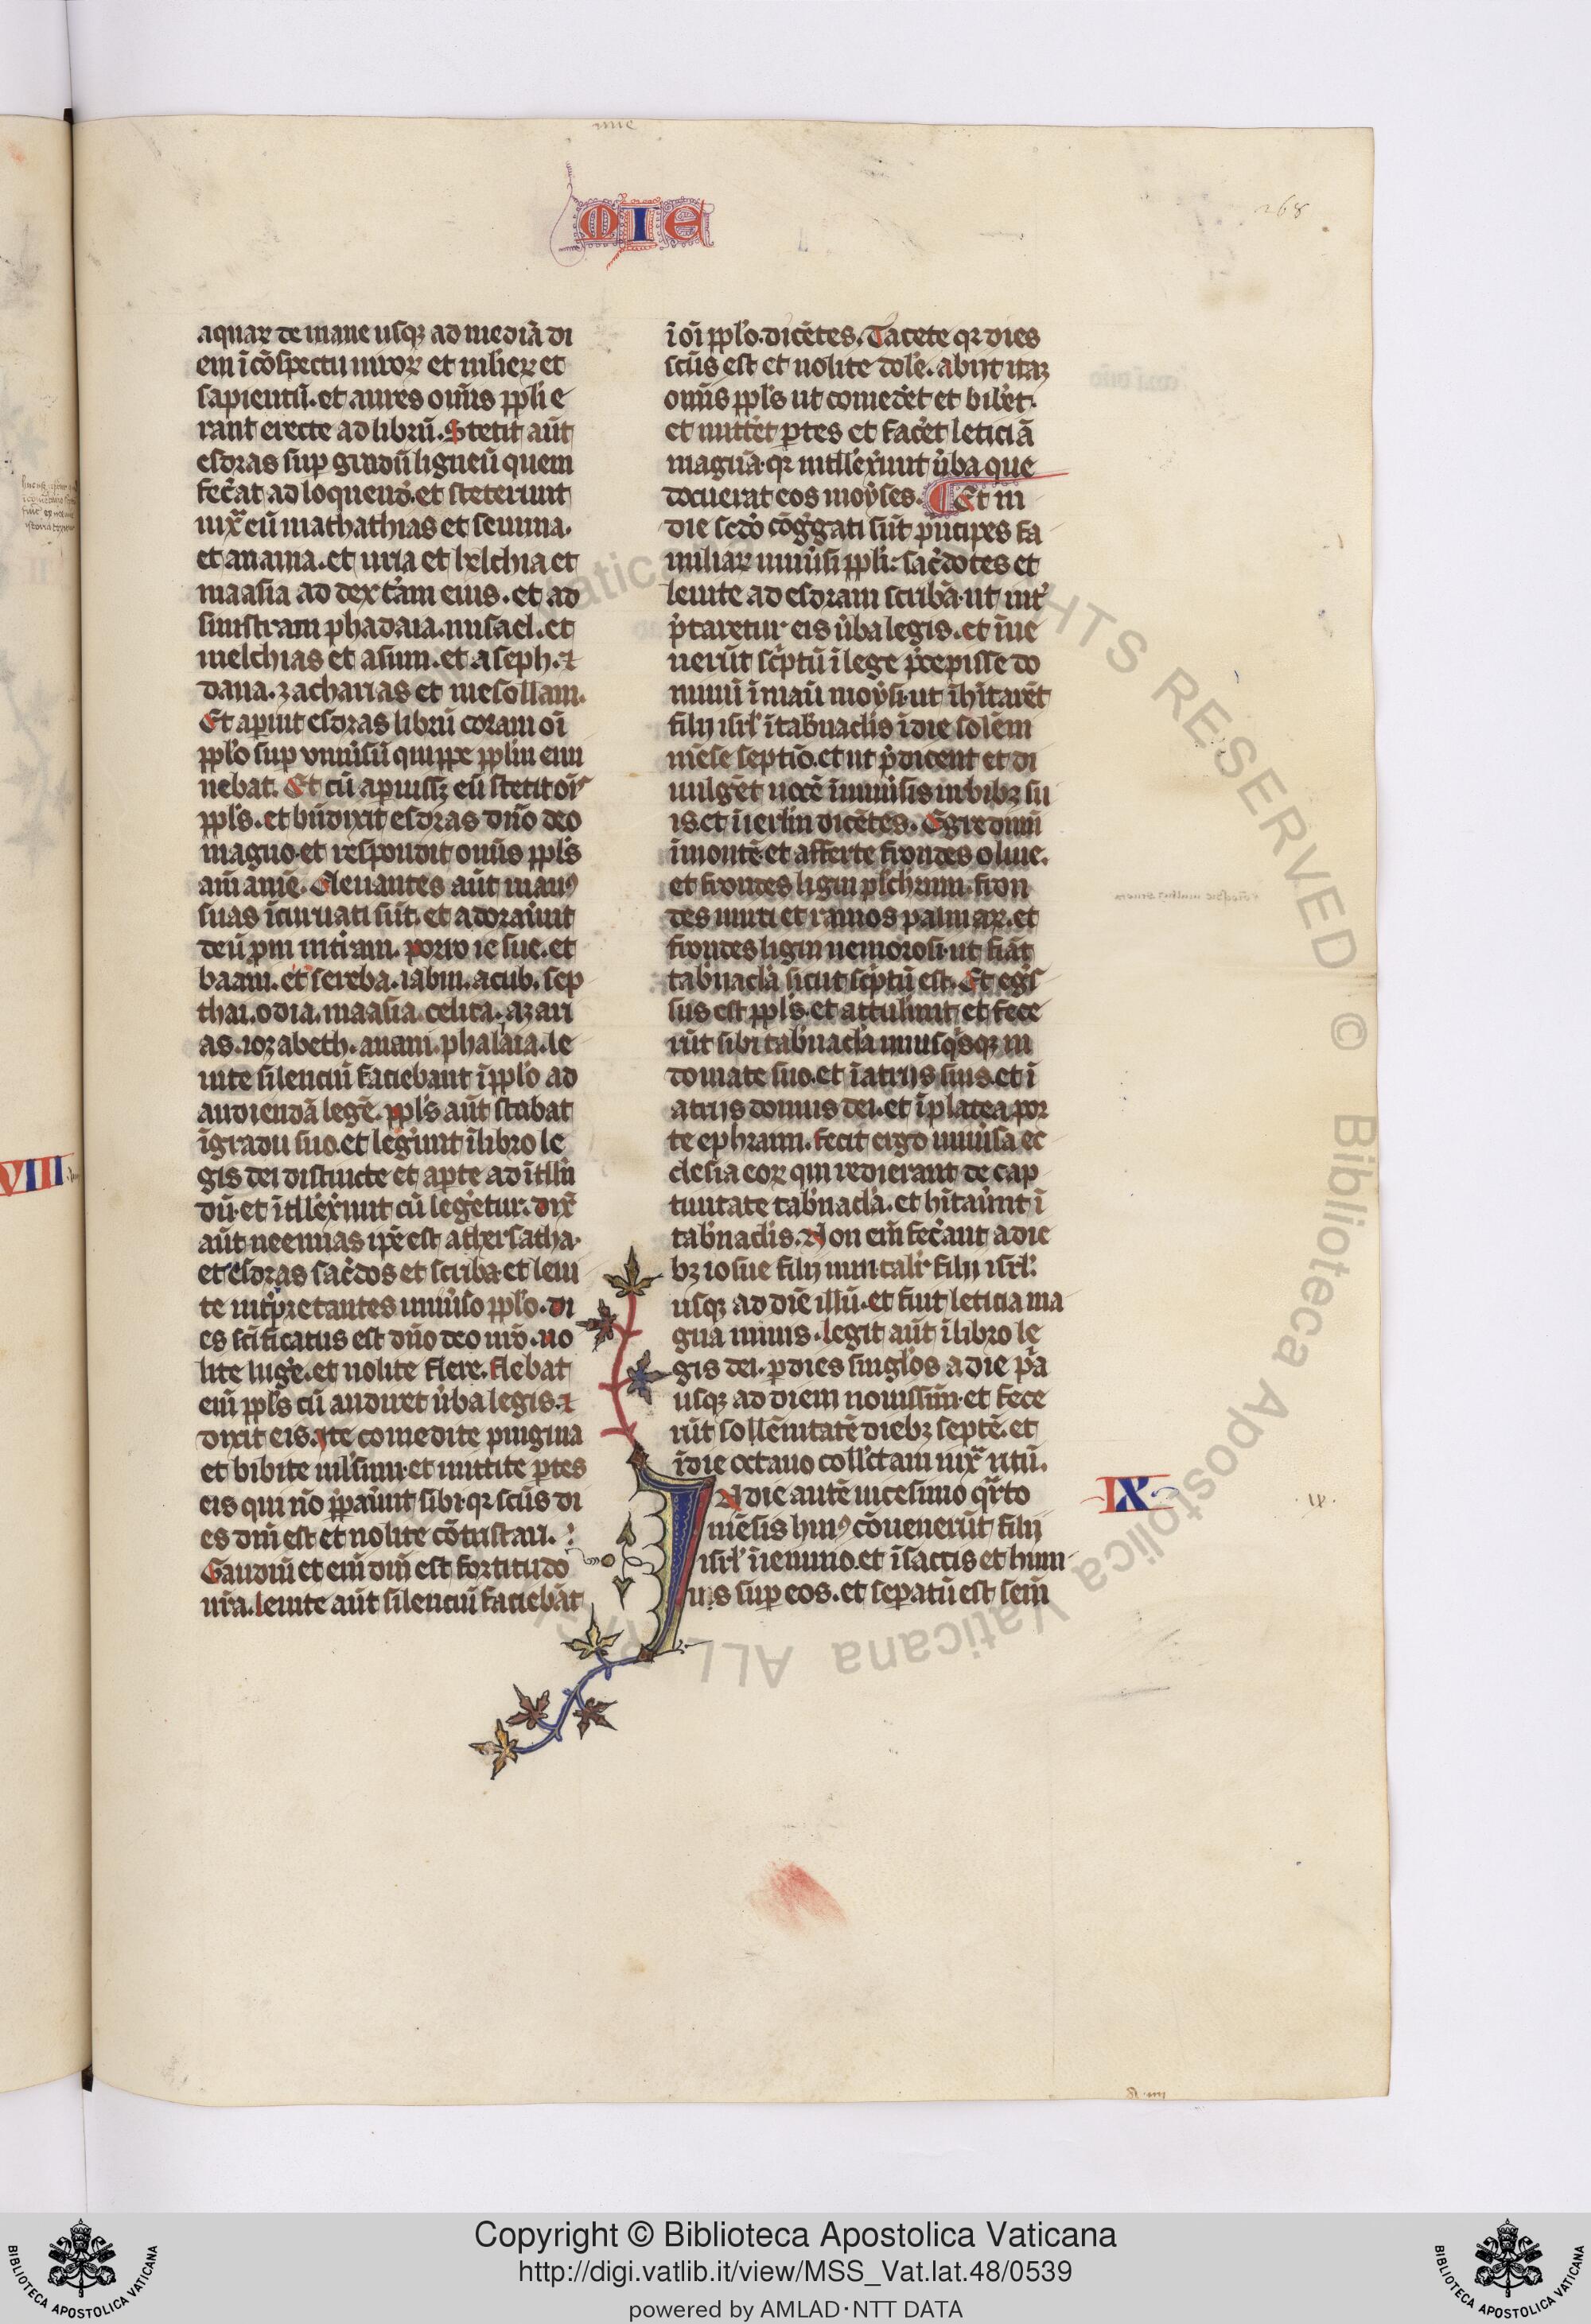 MIE
268
aquaꝝ de mane usqꝫ ad mediā di
em ī cōspectu uiroꝝ et mulieꝝ et
sapientiū. et aures om̄is pp̄li e
rant erecte ad librū. Stetit aūt
esdras sup gradū ligneū quem
fec̄at ad loquend̄. et steterunt
iux̄ eū mathathias et semma.
et anaina. et uria et helchia et
maasia ad dext̄am eius. et ad
sinistram phadaia. misael. et
melchias et asum. et aseph. ⁊
dana. zacharias et mesollam.
Et apuit esdras librū coram oī
pp̄lo sup vniūsū quippe pp̄lm emi
nebat. Et cū apuissꝫ eū stetit oīs
pp̄ls. et bn̄dixit esdras dn̄o deo
magno. et respondit om̄is pp̄ls
am̄ am̄e. Eleuantes aūt manꝰ
suas īcuruati sūt. et adorau̅nt
deū pni in t̄ram. porro iesue. et
baani. et sereba. iabin. acub. sep
thai. odia. maasia. celita. azari
as. iozabeth. anani. phalaia. le
uite silenciū faciebant ī pp̄lo ad
audiendā legē. pp̄ls aūt stabat
ī gradu suo. et leg̅unt ī libro le
gis dei distincte et apte ad ītllī
dū. et ītllexunt cū leg̅etur. dix̄
aūt neemias ip̄e est athersatha.
et esdras sac̄dos et scriba. et leui
te int̄pretantes uniūso pp̄lo. di
es sc̄ificatus est dn̄o deo nr̄o. no
lite luḡe. et nolite flere. flebat
eni pp̄ls cū audiret ūba legis. ⁊
dixit eis. ite comedite pinguia
et bibite mulsum. et mittite ptes
eis qui nō pp̄aūnt sibi. qꝛ scūs di
es dn̄i est et nolite cōtristari.
Gaudiū et eni dn̄i est fortitudo
nr̄a. leuite aūt silenciū faciebāt
ī oī pp̄lo. dicētes. Tacete qꝛ dies
scūs est et nolite dole. abiit itaꝫ
om̄is pp̄ls ut comed̄et et bib̄et.
et mitt̄et ptes et fac̄et leticiā
magnā. qꝛ intllex̄unt ūba que
docuerat eos moyses. Et in
die scd̄o cōḡgati sūt pncipes fa
miliaꝝ uniūsi pp̄li. sac̄dotes et
leuite ad esdram scribā. ut int̄
p̄taretur eis ūba legis. et īue
nerūt sc̄ptū ī lege p̄cepisse do
minū ī manū moysi. ut īhītarēt
filij isrl̄ ī tab̄naclis ī die solēni
mēse septīo. et ut p̄dicent et di
uulḡet uocē ī uniūsis urbibꝫ su
is. et ī ierlm̄ dicētes. Egredimī
ī montē. et afferte frondes oliue.
et frondes ligni plch̄rimi. fron
des mirti et ramos palmaꝝ. et
frondes ligni nemorosi. ut fiāt
tab̄nacla sicut sc̄ptū est. Et eḡs
sus est pp̄ls. et attulunt. et fece
rūt sibi tab̄nacla unusq̄sqꝫ in
domate suo. et ī atrijs suis. et ī
atrijs domus dei. et ī platea por
te ephraim. fecit ergo uniūsa ec
clesia eoꝝ qui redierant de cap
tiuitate tab̄nacla. et hītau̅nt ī
tab̄naclis. Non eni fec̄ant a die
bꝫ iosue filij nun. talir filij isrl̄.
usqꝫ ad diē illū. et fuit leticia ma
gna nimis. legit aūt ī libro le
gis dei. p dies singlos a die p̄a
usqꝫ ad diem nouissim̄. et fece
rūt sollēnitatē diebꝫ septē. et
ī die octauo coll̄ctam iux̄ ritū.
IX
IN die autē uicesimo qr̄to
mēsis huiꝰ cōuenerūt filij
isrl̄ ī ieiunio. et ī saccis et hum
us sup eos. et sepatū est sem̄
ix.
VIII
Copyright © Biblioteca Apostolica Vaticana
http://digi.vatlib.it/view/MSS_Vat.lat.48/0539
powered by AMLAD·NTT DATA
BIBLIOTECA APOSTOLICA VATICANA
BIBLIOTECA APOSTOLICA VATICANA